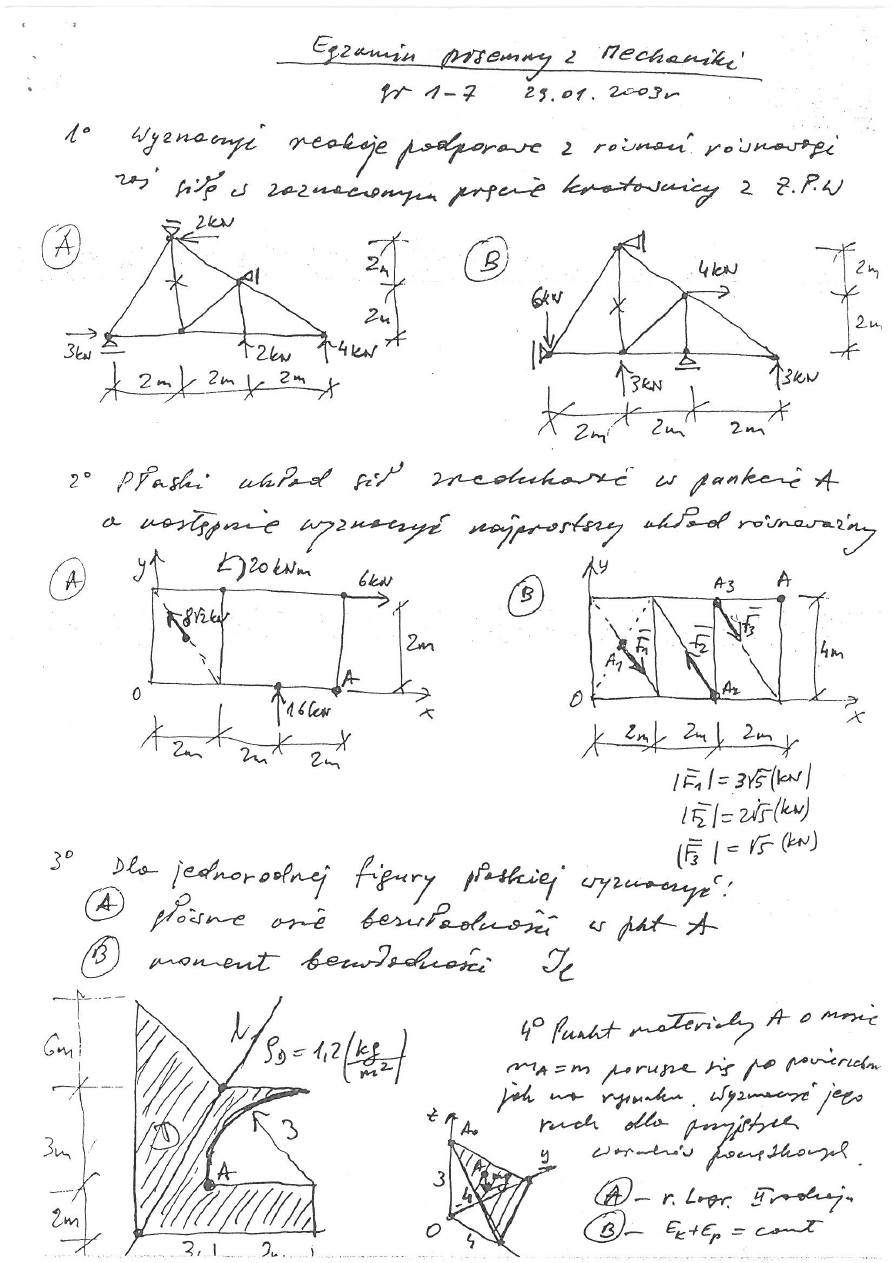 Egzamin pisemny z Mechaniki
gr 1-7 29.01.2003r
1° Wyznaczyć reakcje podporowe z równań równowagi
zaś siłę w zaznaczonym pręcie kratownicy z Z.P.W
A
2kN
3kN
2kN
4kN
2m
2m
2m
2m
2m
B
6kN
4kN
3kN
3kN
2m
2m
2m
2m
2m
2° Płaski układ sił zredukować w punkcie A
a następnie wyznaczyć najprostszy układ równoważny
A
y
20kNm
6kN
8√2kN
2m
0
A
16kN
x
2m
2m
2m
B
y
A3
A
F1
F2
F3
A1
A2
4m
0
x
2m
2m
2m
|F1| = 3√5 (kN)
|F2| = 2√5 (kN)
|F3| = √5 (kN)
3° Dla jednorodnej figury płaskiej wyznaczyć:
A główne osie bezwładności w pkt A
B moment bezwładności Il
6m
3m
2m
l
ρD = 1,2 (kg/m²)
D
3
A
3
4° Punkt materialny A o masie
mA = m porusza się po powierzchni
jak na rysunku. Wyznaczyć jego
ruch dla przyjętych
warunków początkowych.
A - r. Lagr. II rodzaju
B - Ek + Ep = const
z
A0
y
3
A
mg
4
0
4